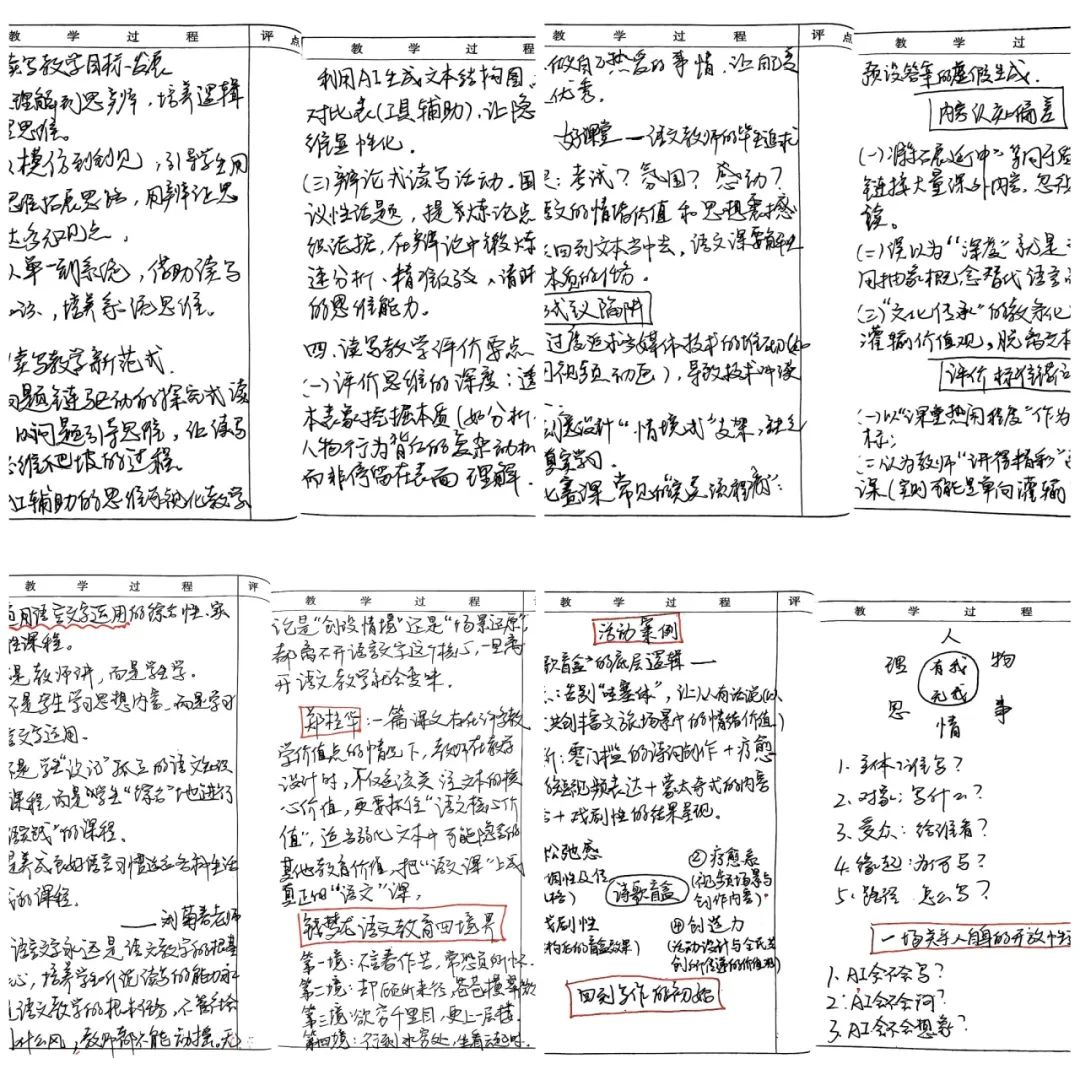 教 学 过 程 评 点
读写教学目标发展
理解到思辨，培养逻辑
思维。
模仿到创见，引导学生用
思维拓展思路，用辩证思
达多元观点。
从单一到系统，借助读写
培养系统思维。
读写教学新范式
问题链驱动的探究式读
以问题引导思维，让读写
思维爬坡的过程。
AI辅助的思维可视化教学
教 学 过 程
利用AI生成文本结构图、
对比表(工具辅助)，让隐
维显性化。
(三)辩论式读写活动。围
议性话题，提炼论点
织论据，在辩论中锻炼
逻分析、精准
的思维能力。
四、读写教学评价要点
(一)评价思维的深度：透
本表象挖掘本质(如分析
人物行为背后的复杂动机
而非停留在表面理解。
教 学 过 程 评
做自己热爱的事情，让自己
优秀。
好课堂——语文教师的毕生追求
：考试？氛围？感动？
致的情绪价值和思想震撼
回到文本当中去，语文课要解决
本质的任务。
式陷阱
过度追求多媒体技术的
视频动画)，导致技术
刻意设计“情境式”支架，缺乏
真实学习
赛课常见的
教 学 过
预设答案的虚假生成。
内容认知偏差
(一)
链接大量课外内容，忽视
读。
(二)误以为“深度”就是
用抽象概念替代语言
(三)“文化传承”的
灌输价值观，脱离文本
评价标准错位
(一)以“课堂热闹程度”作为
标；
(二)以为教师“讲得精彩”
课(实则可能是单向灌输
教 学 过 程 评
用语言文字运用的综合性、实
性课程。
是教师讲，而是学生学。
不是学生学习思想内容，而是学习
言文字运用。
不是学生“识记”孤立的语文知识
课程，而是学生“综合”地进行
实践”的课程。
是养成良好语言习惯
的课程。
——刘菊春老师
语言文字永远是语文教学的根基
心，培养学生听说读写的能力
语文教学的根本任务，不管社会
什么风，教师都不能动摇。无
教 学 过 程
论是“创设情境”还是“场景还原”，
都离不开语言文字这个核心，一旦离
开语文教学就会变味。
郑桂华：一篇课文存在许多教
学价值点的情况下，教师在教学
设计时，不仅应该关注文本的核
心价值，更要抓住“语文核心价
值”，适当弱化文本中可能隐含的
其他教育价值，把“语文课”上成
真正的“语文”课。
钱梦龙语文教育四境界
第一境：不言春作苦，常恐负所怀。
第二境：却顾所来径，苍苍横翠微
第三境：欲穷千里目，更上一层楼。
第四境：行到水穷处，坐看云起时。
教 学 过 程 评
活动案例
歌盲盒”的底层逻辑——
：告别“哇塞体”，让人人有话说(从
共创丰富文旅场景中的情绪价值)
：零门槛的诗词创作+疗愈
短视频表达+蒙太奇式的内容
+戏剧性的结果呈现。
松弛感
②疗愈系
(视频场景与
创作内容)
诗歌盲盒
戏剧性
的盲盒效果)
④创造力
(活动设计与全民共
创所传递的价值观)
回到写作的初始
教 学 过 程
人
理 有我 物
无我
思 事
情
1. 主体：谁写？
2. 对象：写什么？
3. 受众：给谁看？
4. 缘起：为何写？
5. 路径：怎么写？
一场关乎人自身的开放
1. AI会不会写？
2. AI会不会问？
3. AI会不会想象？